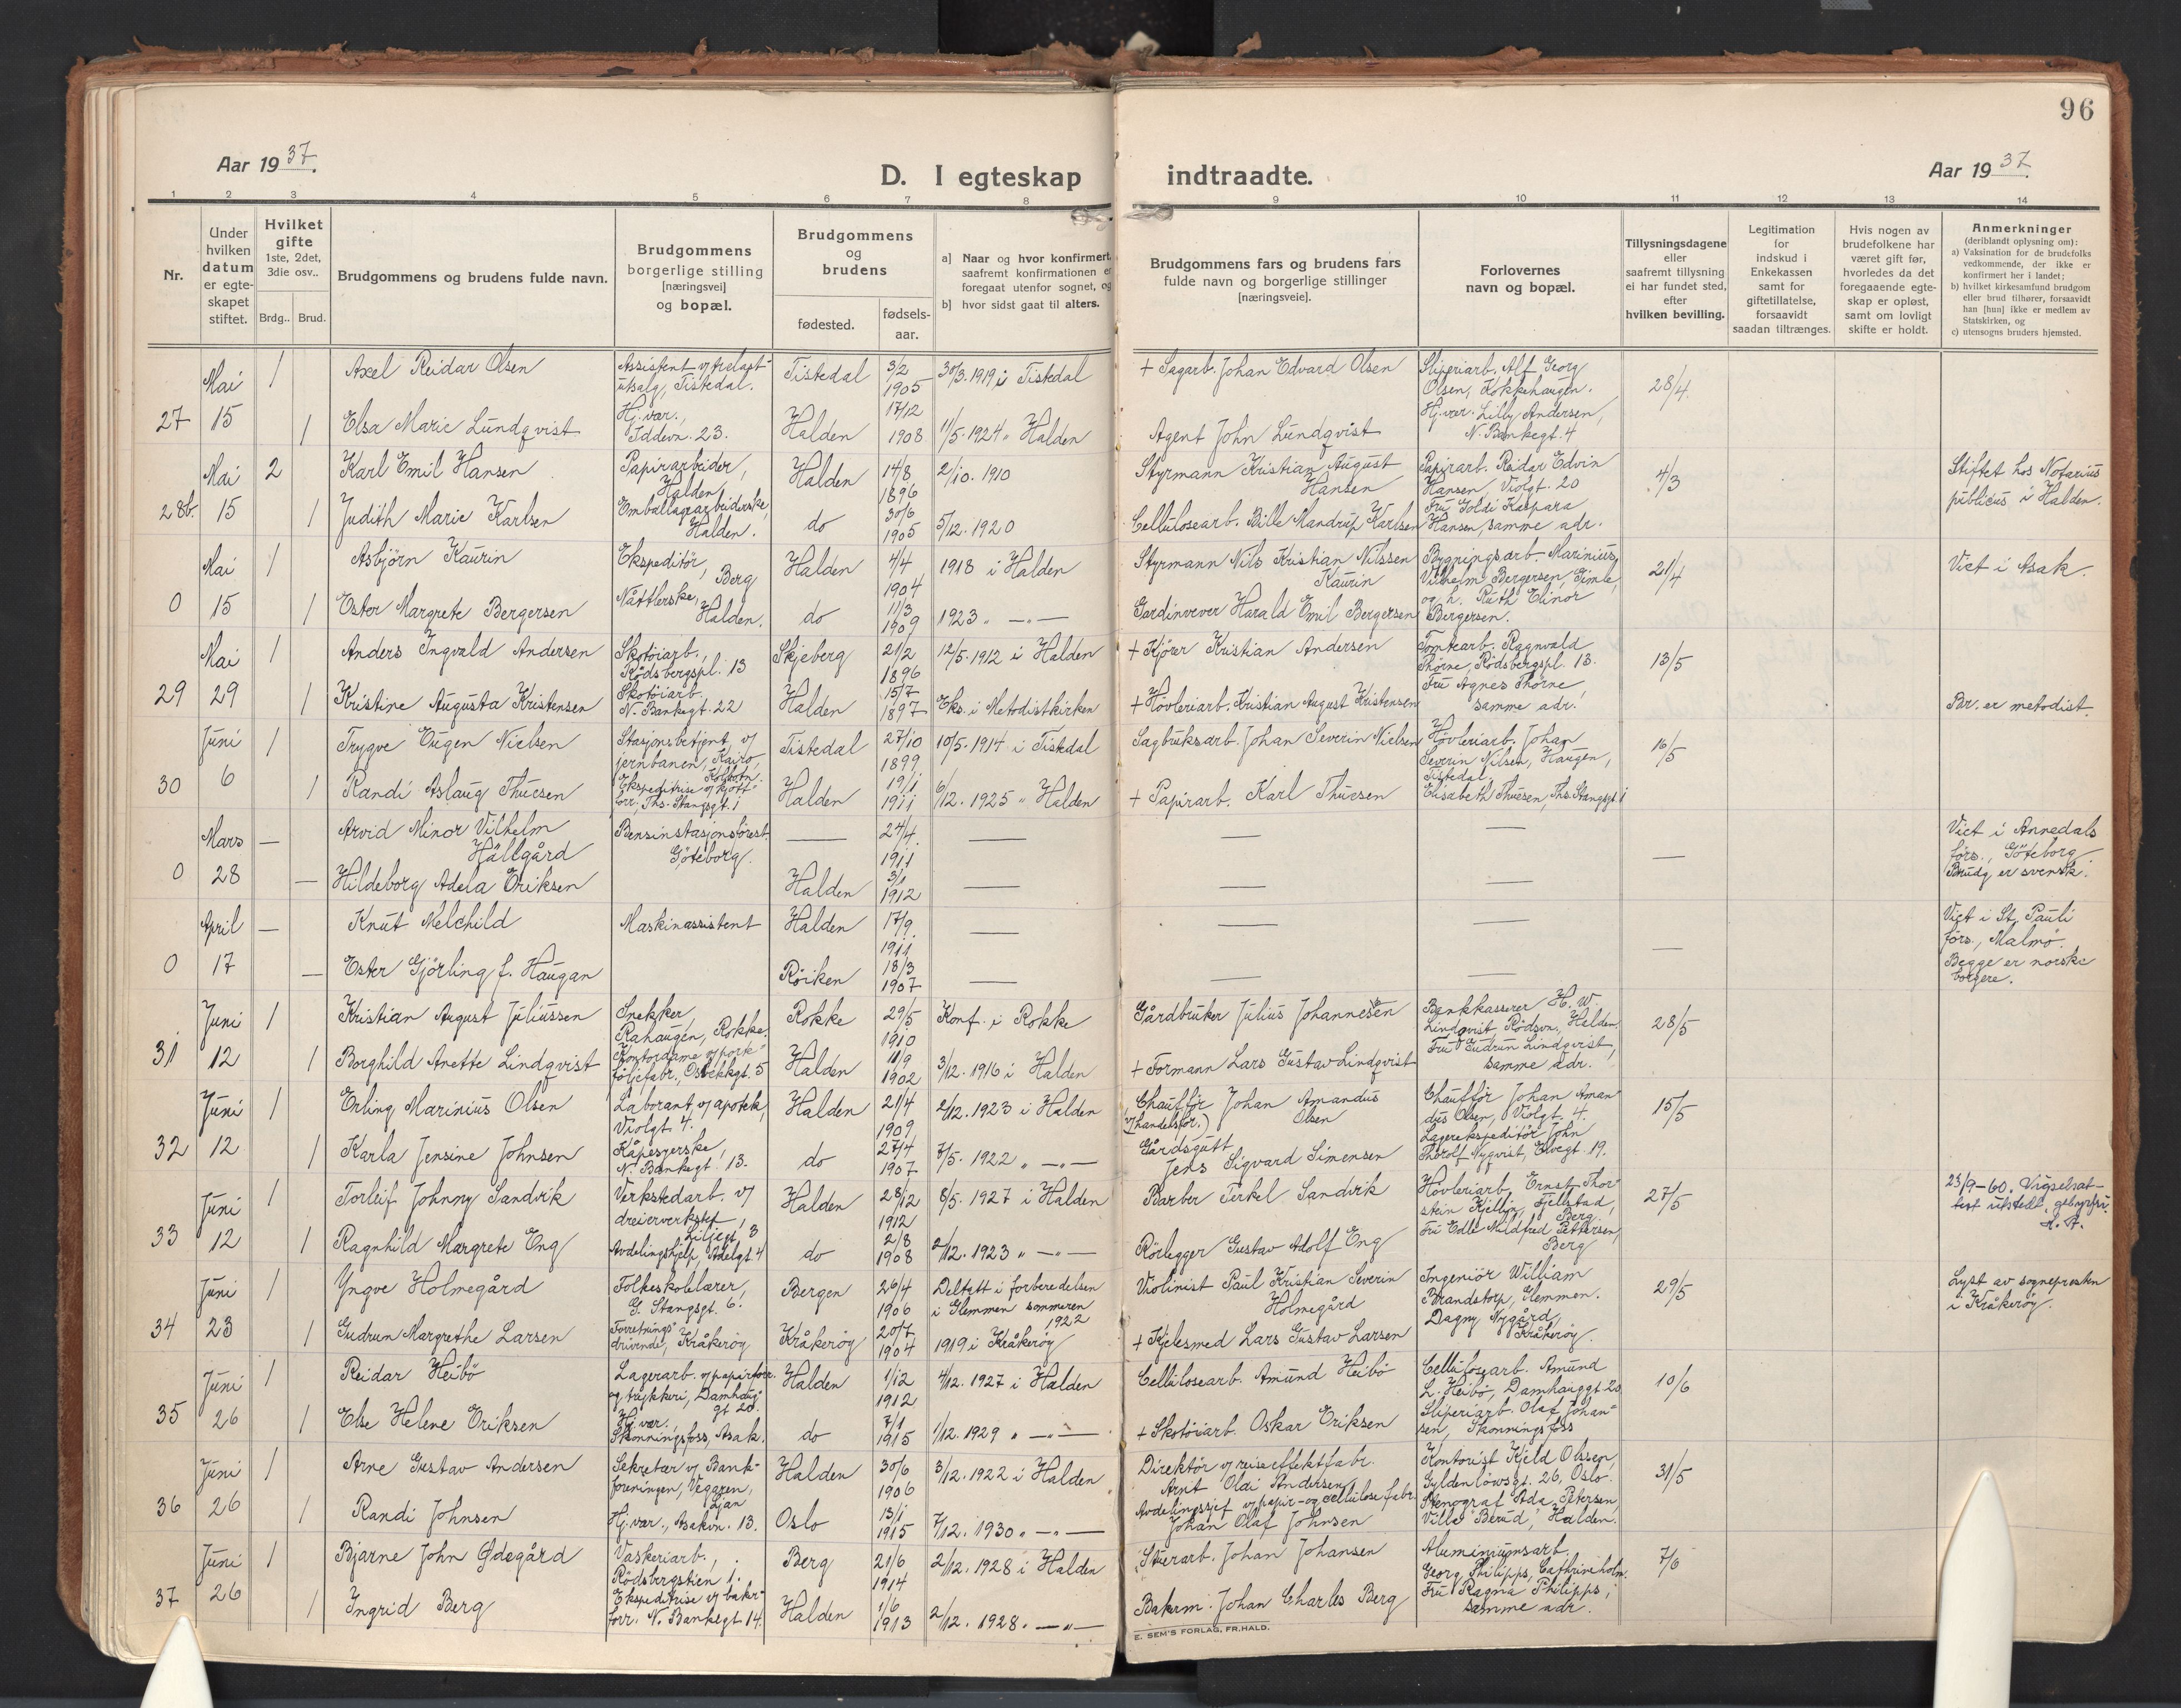 96
Aar 1937.
D. I egteskap indtraadte.
Aar 1937.
1 2 3 4 5 6 7 8 9 10 11 12 13 14
Nr.
Under hvilken datum er egteskapet stiftet.
Hvilket gifte 1ste, 2det, 3die osv..
Brdg.. Brud.
Brudgommens og brudens fulde navn.
Brudgommens borgerlige stilling [næringsvei] og bopæl.
Brudgommens og brudens
fødested.
fødselsaar.
a] Naar og hvor konfirmert, saafremt konfirmationen er foregaat utenfor sognet, og
b] hvor sidst gaat til alters.
Brudgommens fars og brudens fars fulde navn og borgerlige stillinger [næringsveie].
Forlovernes navn og bopæl.
Tillysningsdagene eller saafremt tillysning ei har fundet sted, efter hvilken bevilling.
Legitimation for indskud i Enkekassen samt for giftetillatelse, forsaavidt saadan tiltrænges.
Hvis nogen av brudefolkene har været gift før, hvorledes da det foregaaende egteskap er opløst, samt om lovligt skifte er holdt.
Anmerkninger (deriblandt oplysning om):
a) Vaksination for de brudefolks vedkommende, der ikke er konfirmert her i landet;
b) hvilket kirkesamfund brudgom eller brud tilhører, forsaavidt han [hun] ikke er medlem av Statskirken, og
c) utensogns bruders hjemsted.
27 Mai 15
1 Axel Reidar Olsen Assistent v/ trelast- utsalg, Tistedal. Tistedal 3/2 1905 30/3. 1919 i Tistedal + Sagarb. Johan Edvard Olsen Sliperiarb. Alf Georg Olsen, Kokkehaugen. 28/4
1 Elsa Marie Lundqvist Hj.vær., Iddevn. 23. Halden 17/12 1908 11/5. 1924 " Halden Agent John Lundqvist Hj.vær. Lilly Andersen, N. Bankegt. 4
28b. Mai 15
2 Karl Emil Hansen Papirarbeider, Halden Halden 14/8 1896 2/10. 1910 Styrmann Kristian August Hansen Papirarb. Reidar Edvin Hansen, Violgt. 20 4/3 Stiftet hos Notarius publicus i Halden.
1 Judith Marie Karlsen Emballagearbeiderske, Halden. do 30/6 1905 5/12. 1920 Cellulosearb. Bille Mandrup Karlsen Fru Goldi Kaspara Hansen, samme adr.
0 Mai 15
1 Asbjörn Kaurin Ekspeditör, Berg Halden 4/4 1904 1918 i Halden Styrmann Nils Kristian Nilssen Kaurin Bygningsarb. Marinius Vilhelm Bergersen, Gimle, 21/4 Viet i Asak.
1 Ester Margrete Bergersen Nåttlerske, Halden. do 11/3 1909 1923 " —"— Gardinvever Harald Emil Bergersen og h. Ruth Elinor Bergersen.
29 Mai 29
1 Anders Ingvald Andersen Skotöiarb., Rödsbergspl. 13 Skjeberg 21/2 1896 12/5. 1912 i Halden + Kjörer Kristian Andersen Tomtearb. Ragnvald Thorne, Rödsbergspl. 13. 13/5
1 Kristine Augusta Kristensen Skotöiarb. N. Bankegt. 22 Halden 15/7 1897 Eks. i Metodistkirken + Hövleriarb. Kristian August Kristensen Fru Agnes Thorne, samme adr. Br. er metodist.
30 Juni 6
1 Trygve Eugen Nielsen Stasjonsbetjent v/ jernbanen, Kairo, Kolbotn. Tistedal 27/10 1899 10/5. 1914 i Tistedal Sagbruksarb. Johan Severin Nielsen Hövleriarb. Johan Severin Nilsen, Haugen, Tistedal. 16/5
1 Randi Aslaug Thuesen Ekspeditrise v/ kjött- forr., Ths. Stangsgt. 1 Halden 19/1 1911 6/12. 1925 " Halden + Papirarb. Karl Thuesen Elisabeth Thuesen, Ths. Stangsgt. 1
0 Mars 28
— Arvid Minor Vilhelm Hällgård Bensinstasjonsforest. Göteborg. — 24/4 1911 — — — — Viet i Annedals förs., Göteborg. Brudg. er svensk.
— Hildeborg Adela Eriksen Halden 3/1 1912 — — —
0 April 17
— Knut Melchild Maskinassistent Halden 17/9 1911 — — — — Viet i St. Pauli förs., Malmö. Begge er norske borgere.
— Ester Gjörling f. Haugan Röiken 18/3 1907 — — —
31 Juni 12
1 Kristian August Juliussen Snekker, Rahaugen, Rokke. Rokke 29/5 1910 Konf. i Rokke Gårdbruker Julius Johannesen Bankkasserer H. W. Lindqvist, Rödsvn., Halden. 28/5
1 Borghild Anette Lindqvist Kontordame v/ porte- följefabr., Osbekkgt. 5 Halden 11/9 1902 3/12. 1916 i Halden + Formann Lars Gustav Lindqvist Fru Gudrun Lindqvist, samme adr.
32 Juni 12
1 Erling Marinius Olsen Laborant v/ apotek, Violgt. 4. Halden 21/4 1909 2/12. 1923 i Halden Chaufför (v/ handelsfor.) Johan Amandus Olsen Chaufför Johan Aman dus Olsen, Violgt. 4. 15/5
1 Karla Jensine Johnsen Kåpesyerske, N. Bankegt. 13. do 27/4 1907 7/5. 1922 " —"— Gårdsgutt Jens Sigvard Simensen Lagerekspeditör John Therolf Nyqvist, Elvegt. 19.
33 Juni 12
1 Torleif Johnny Sandvik Verkstedarb. v/ dreierverksted, Liljegt. 3 Halden 28/12 1912 8/5. 1927 i Halden Barber Terkel Sandvik Hövleriarb. Ernst Thor stein Kjellin, Fjellstad, Berg. 27/5 23/9-60. Vigselsat- test utstedt, gebyrfri.
1 Ragnhild Margrete Eng Avdelingshjelp, Adelgt. 4 do 2/8 1908 2/12. 1923 " —"— Rörlegger Gustav Adolf Eng Fri Edle Mildfred Pettersen, Berg
34 Juni 23
1 Yngve Holmegård Folkeskolelærer, G. Stangsgt. 6. Bergen 26/4 1906 Deltatt i forberedelsen i Glemmen sommeren 1922 Violinist Paul Kristian Severin Holmegård Ingeniör William Brandstorp, Glemmen. 29/5 Lyst av sognepresten i Kråkeröy.
1 Gudrun Margrethe Larsen Forretnings- drivende, Kråkeröy Kråkeröy 20/7 1904 1919 i Kråkeröy + Kjelesmed Lars Gustav Larsen Dagny Nygård, Kråkeröy.
35 Juni 26
1 Reidar Heibö Lagerarb. v/ papirforr. og trykkeri, Damhaug- gt 20. Halden 1/12 1912 4/12. 1927 i Halden Cellulosearb. Amund Heibö Cellulosearb. Amund L. Heibö, Damhauggt 20 10/6
1 Else Helene Eriksen Hj.vær., Skonningsfoss, Asak. do 7/1 1915 1/12. 1929 " —"— + Skotöiarb. Oskar Eriksen Sliperiarb. Olaf Johan- sen, Skonningsfoss
36 Juni 26
1 Arne Gustav Andersen Sekretær v/ Bank- foreningen, Vegaren, Ljan Halden 30/6 1906 3/12. 1922 i Halden Direktör v/ reiseeffektfabr. Arnt Oldi Andersen Kontorist Kjeld Olssen, Gyldenlöwsgt. 26, Oslo. 31/5
1 Randi Johnsen Hj.vær., Asakvn. 13. Oslo 13/1 1915 7/12. 1930 " —"— Avdelingssjef v/ papir- og cellulosefabr. Johan Olaf Johnsen Stenograf Ada Petersen, Villa "Berud", Halden.
37 Juni 26
1 Bjarne John Ödegård Vaskeriarb., Rödsbergstien 1. Berg 21/6 1914 2/12. 1928 i Halden Stuerarb. Johan Johansen Aluminiumsarb. Georg Philipps, Cathrineholm. 7/6
1 Ingrid Berg Ekspeditrise v/ baker- forr. N. Bankegt 14. Halden 1/6 1913 2/12. 1928. —"— Bakerm. Johan Charles Berg Fru Ragna Philipps, samme adr.
E. SEM'S FORLAG, FR.HALD.